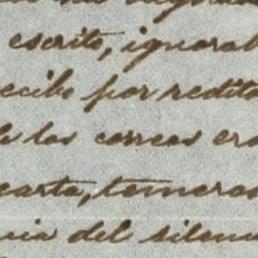 escrito, ignorab
ecibo por redito
los correos era
carta, temeros
cia del silenc